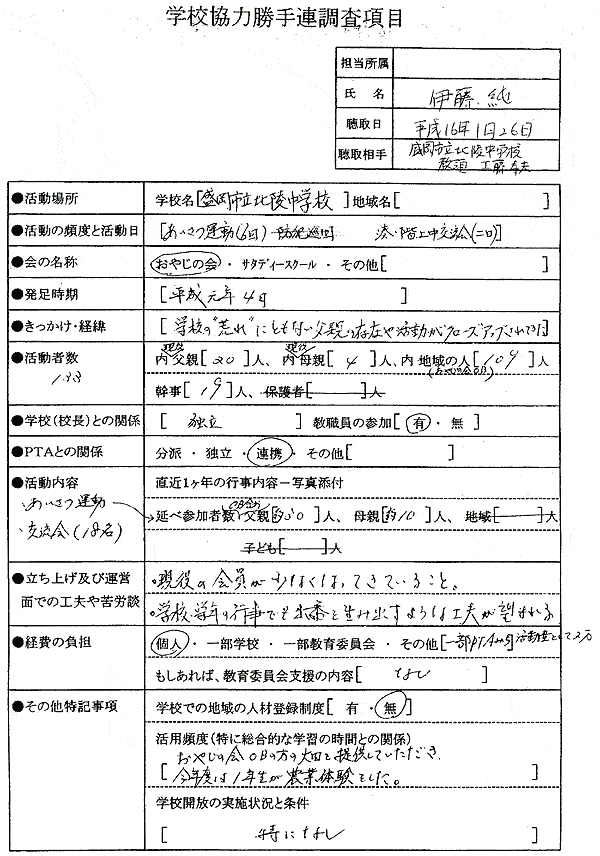 学校協力勝手連調査項目
担当所属
氏 名 伊藤 純
聴取日 平成16年1月26日
聴取相手 盛岡市立北陵中学校
教頭 工藤
●活動場所 学校名[盛岡市立北陵中学校]地域名[ ]
●活動の頻度と活動日 [あいさつ運動(6回) 防犯巡回 交流会(二回)
●会の名称 おやじの会・サタディースクール・その他[ ]
●発足時期 [平成元年4月 ]
●きっかけ・経緯 [学校の"荒れ"にともない父親の存在や活動がクローズアップされてきた]
●活動者数 現役 現役
内 父親[20]人、内 母親[4]人、内 地域の人[109]人
133 (おやじの会OB)
幹事[19]人、保護者[ ]人
●学校(校長)との関係 [独立 ] 教職員の参加[有・無]
●PTAとの関係 分派・独立・連携・その他[ ]
●活動内容 直近1ヶ年の行事内容－写真添付
・あいさつ運動
OB含め
延べ参加者数 父親[約50]人、母親[約10]人、地域[ ]人
・交流会(18名)
子ども[ ]人
●立ち上げ及び運営 ・現役の会員が少なくなってきていること。
面での工夫や苦労談 ・学校・学年の行事でも出番を生み出すような工夫が望まれる
●経費の負担 個人・一部学校・一部教育委員会・その他[一部PTAから]活動費として2万
もしあれば、教育委員会支援の内容[ なし ]
●その他特記事項 学校での地域の人材登録制度[有・無]
活用頻度(特に総合的な学習の時間との関係)
おやじの会OBの方の大田を提供していただき、
[今年度は1年生が農業体験をした。 ]
学校開放の実施状況と条件
[ 特になし ]